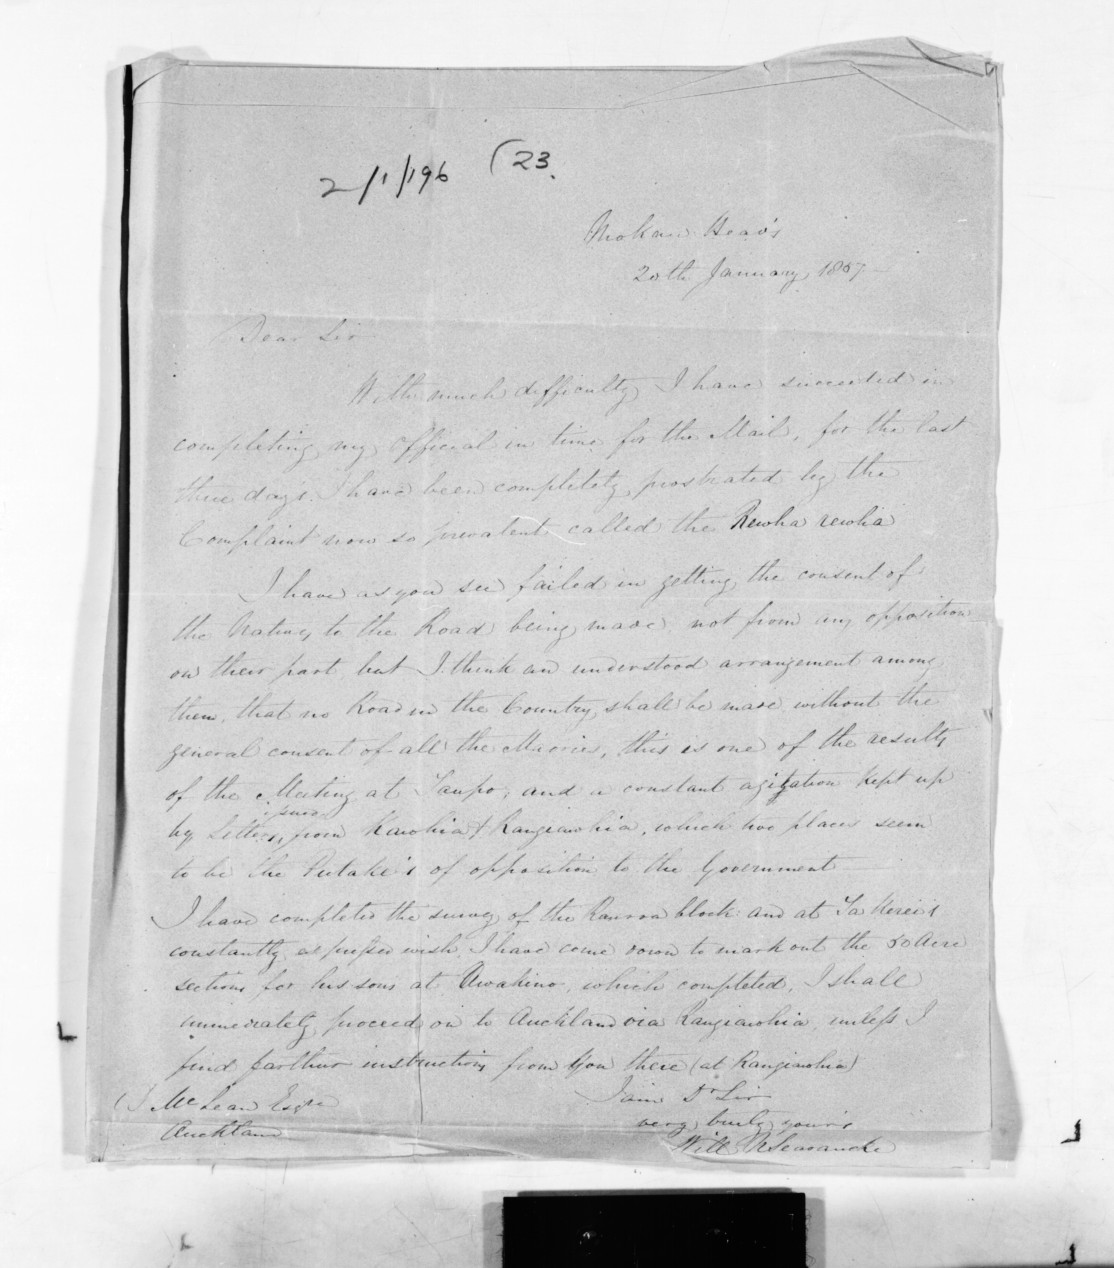 2/1/196 (23.
Mokau Head's
20th January 1857
Dear Sir
With much difficulty I have succeeded in
completing my Official in time for the Mail, for the last
three days I have been completely prostrated by the
Complaint now so prevalent called the Rewha rewha
I have as you see failed in getting the consent of
the Natives to the Road being made not from any opposition
on their part but I think an understood arrangement among
them, that no Road in the Country shall be made without the
general consent of all the Maories, this is one of the results
of the Meeting at Taupo, and a constant agitation kept up
by Letters, from Kawhia & Rangiawhia, which two places seem
to be the Putake's of opposition to the Government
I have completed the survey of the Rauroa block and at Ta Kerei's
constantly expressed wish I have come down to mark out the 50 Acre
sections for his sons at Awakino, which completed, I shall
immediately proceed on to Auckland via Rangiawhia unless I
find farther instructions from you there (at Rangiawhia)
I am Dr Sir
very truly yours
Will N Searancke
McLean Esqre
Auckland